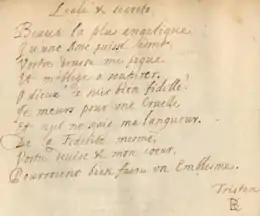 Leale & secreto
Beauté la plus angelique
Qu'une Ame puisse
Vostre me pique
Et m'oblige a soupirer.
O dieux! je suis bien fidelle!
Je meurs pour une Cruelle
Et qui ne sçait ma langueur.
De la Fidelité mesme,
Vostre & mon coeur,
Pourroient bien faire un Embleme.
Tristan